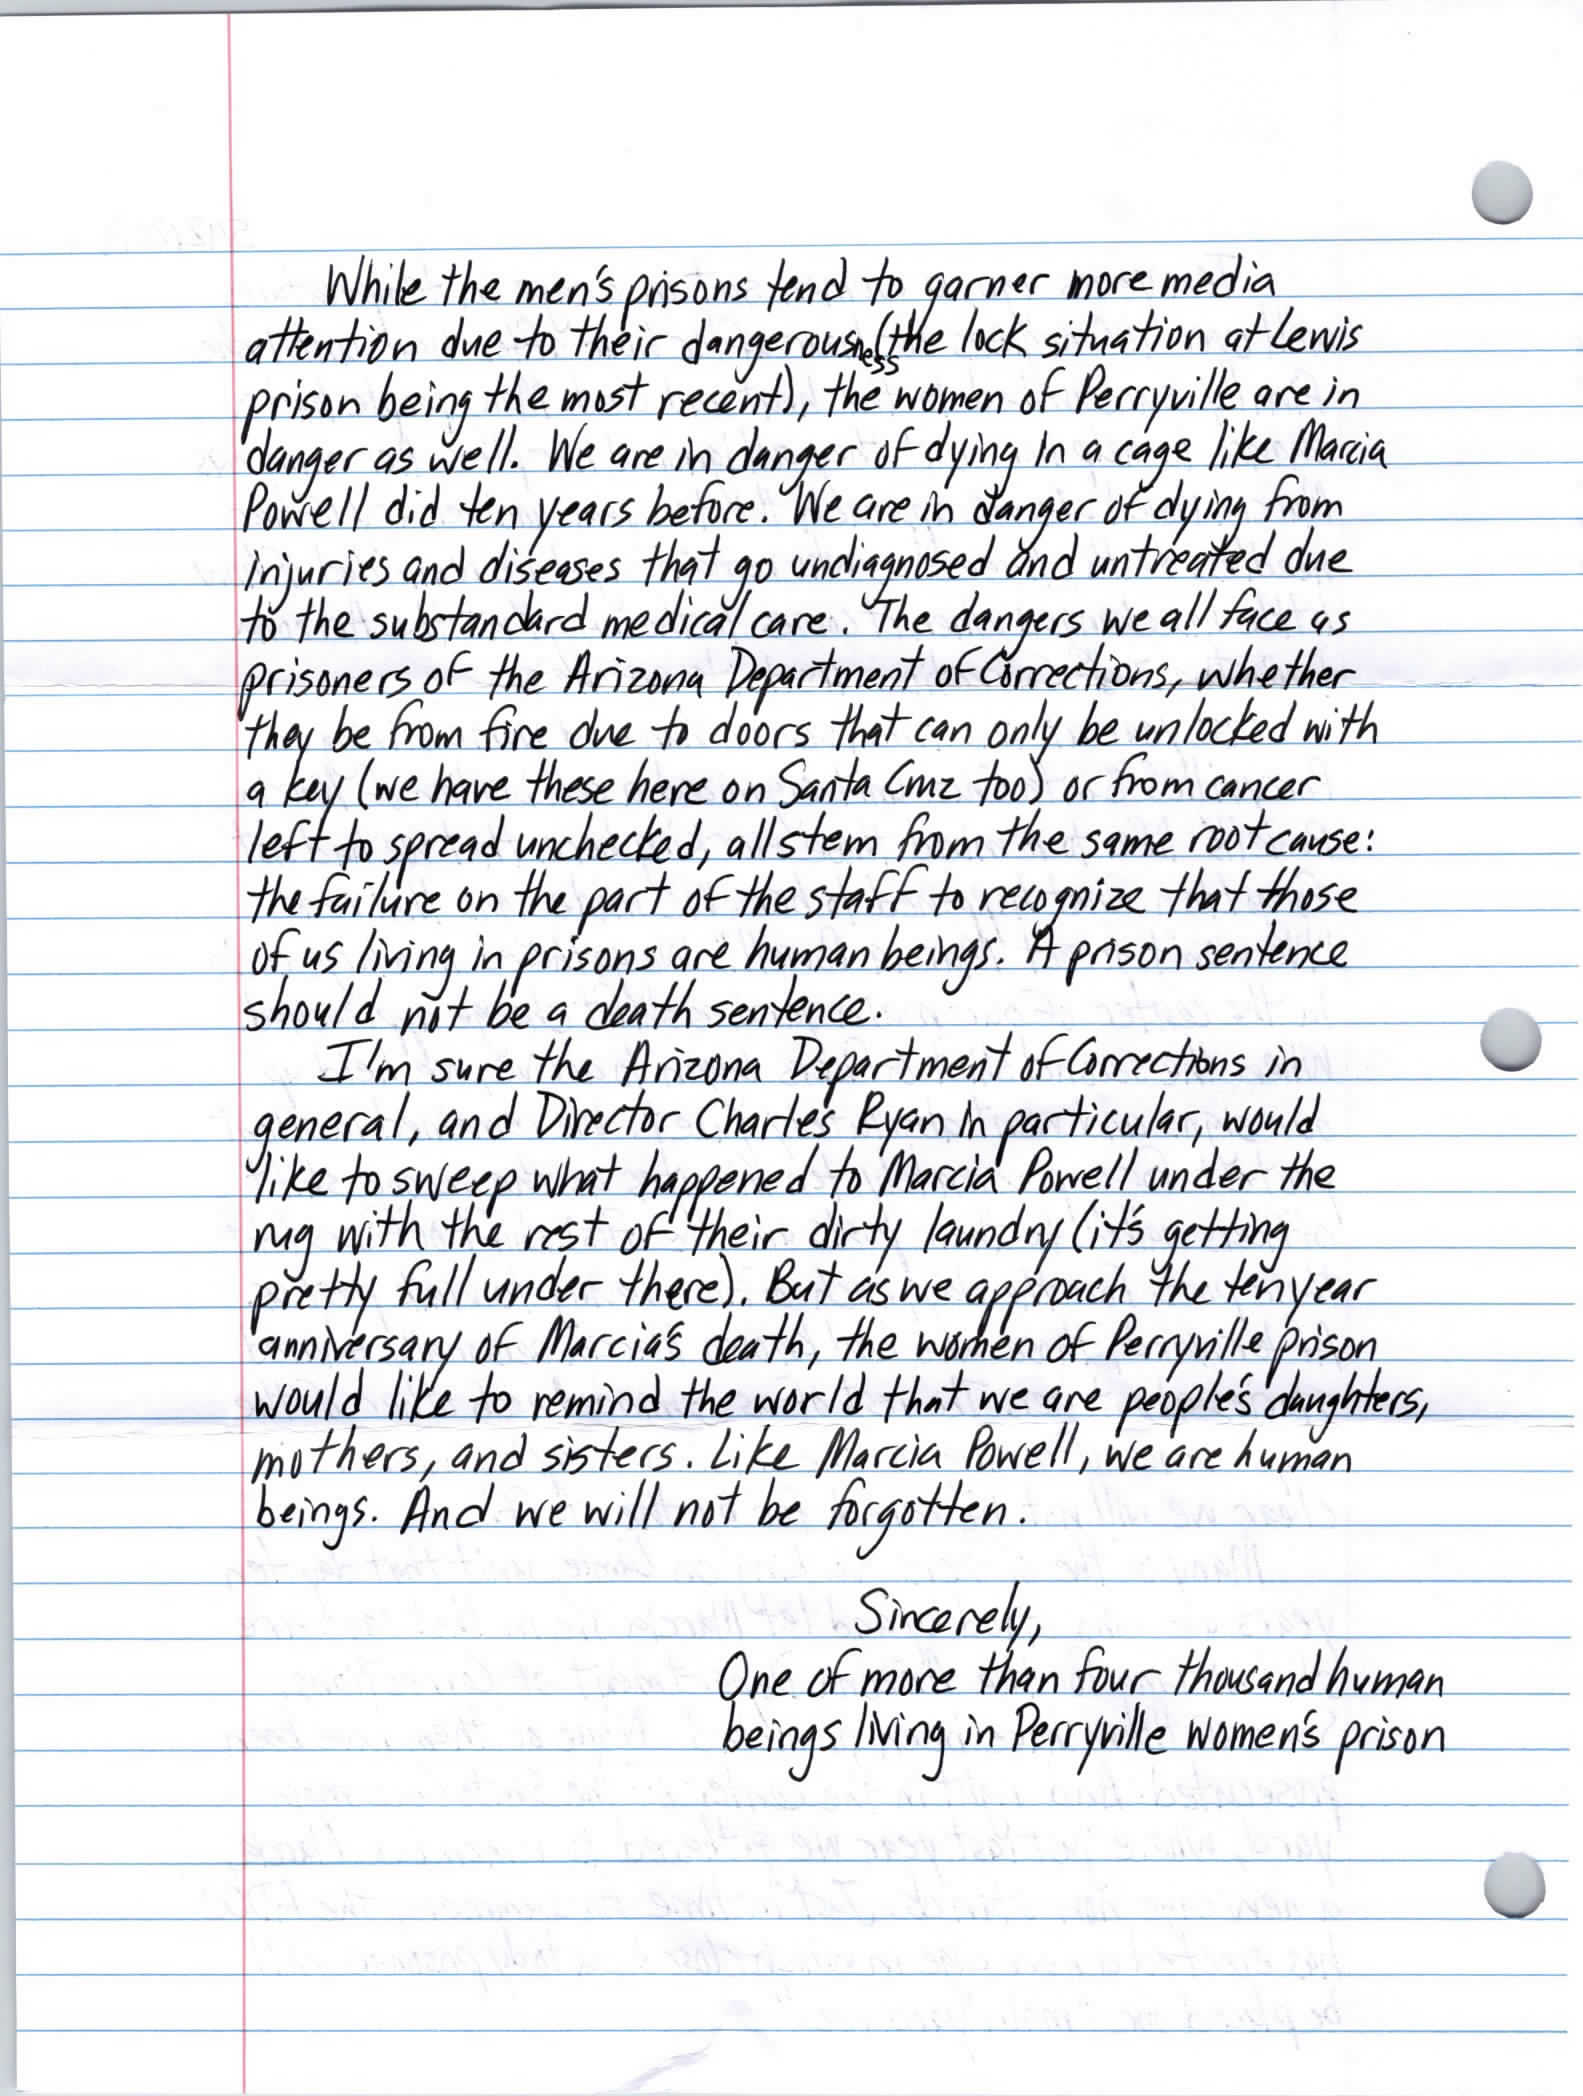 While the men's prisons tend to garner more media
attention due to their dangerousness (the lock situation at Lewis
prison being the most recent), the women of Perryville are in
danger as well. We are in danger of dying in a cage like Marcia
Powell did ten years before. We are in danger of dying from
injuries and diseases that go undiagnosed and untreated due
to the substandard medical care. The dangers we all face as
prisoners of the Arizona Department of Corrections, whether
they be from fire due to doors that can only be unlocked with
a key (we have these here on Santa Cruz too) or from cancer
left to spread unchecked, all stem from the same root cause:
the failure on the part of the staff to recognize that those
of us living in prisons are human beings. A prison sentence
should not be a death sentence.
I'm sure the Arizona Department of Corrections in
general, and Director Charles Ryan in particular, would
like to sweep what happened to Marcia Powell under the
rug with the rest of their dirty laundry (it's getting
pretty full under there). But as we approach the ten year
anniversary of Marcia's death, the women of Perryville prison
would like to remind the world that we are people's daughters,
mothers, and sisters. Like Marcia Powell, we are human
beings. And we will not be forgotten.
Sincerely,
One of more than four thousand human
beings living in Perryville women's prison